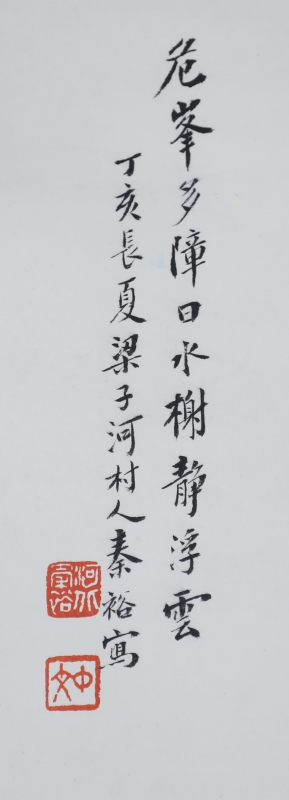 危峯多障日水榭静浮雲
丁亥長夏梁子河村人秦裕寫